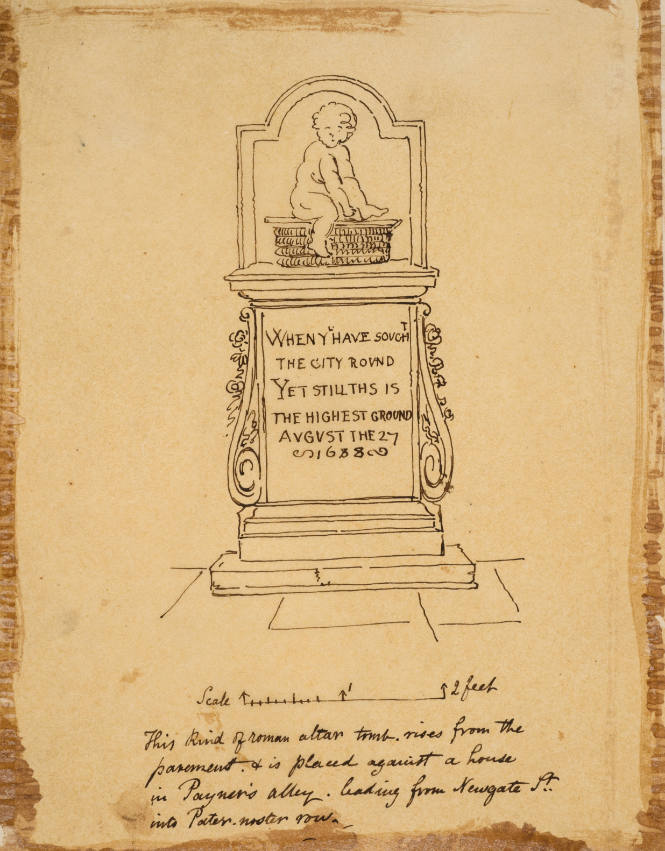 WHEN Yᵛ HAVE SOVGHᵀ
THE CITY ROVND
YET STILL THS IS
THE HIGHEST GROUND
AVGVST THE 27
1688
Scale 1 2 feet
This kind of roman altar tomb. rises from the
pavement. & is placed against a house
in Payner's alley. leading from Newgate St.
into Pater-noster row.